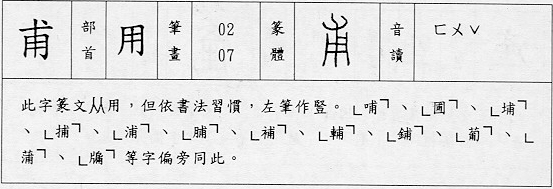 甫 部首 用 筆畫 02 07 篆體 甫 音讀 ㄈㄨˇ
此字篆文从用，但依書法習慣，左筆作豎。「哺」、「圃」、「埔」
、「捕」、「浦」、「脯」、「補」、「輔」、「鋪」、「葡」、「
蒲」、「牖」等字偏旁同此。